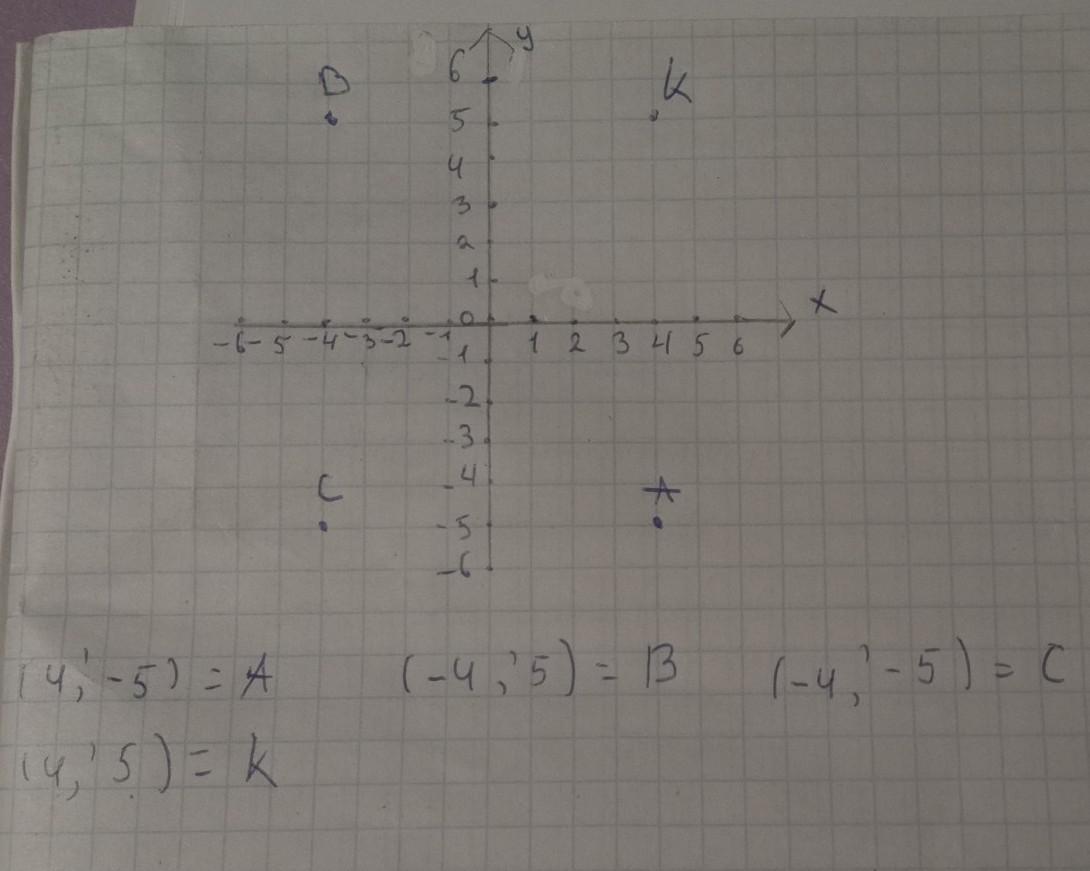 y
6
B K
5
4
3
2
1
x
0
-6 -5 -4 -3 -2 -1 1 2 3 4 5 6
-1
-2
-3
-4
C A
-5
-6
(4; -5) = A (-4; 5) = B (-4; -5) = C
(4; 5) = K